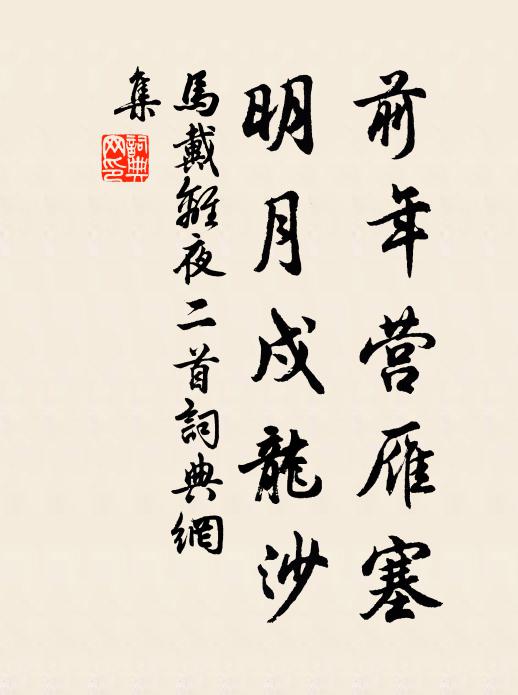 前年营雁塞
明月戍龍沙
馬戴離夜二首詞典網
集
詞典網印